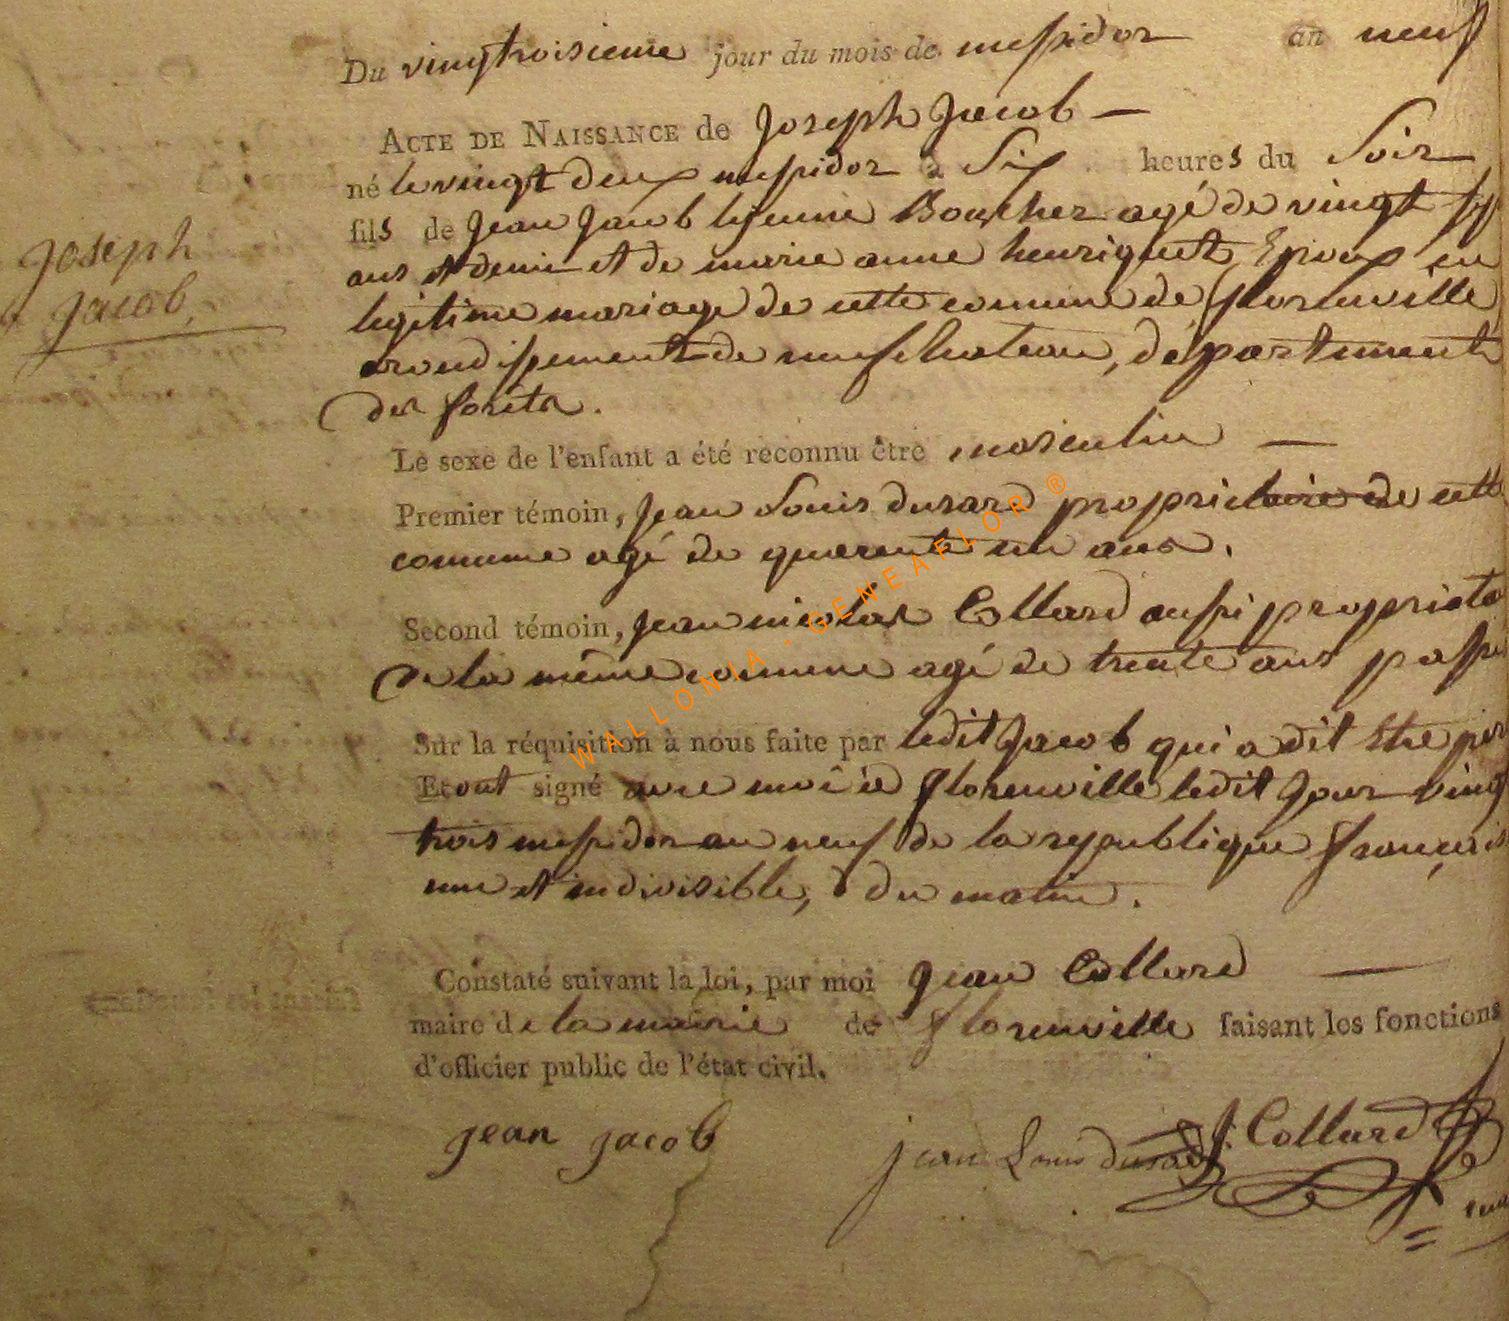 Du vingtroisieme jour du mois de messidor an neuf
ACTE DE NAISSANCE de Joseph Jacob —
né le vingt deux messidor à Six heures du Soir
fils de Jean Jacob lejeune Boucher agé de vingt six
ans et demi et de marie anne henriquet Epoux en
legitime mariage de cette comune de florenville
arondissement de neufchateau, département
des forêts.
Joseph
Jacob,
Le sexe de l'enfant a été reconnu être masculin —
Premier témoin, Jean Louis dusard propriétaire de cette
comune agé de quarente un ans.
Second témoin, Jean nicolas Collard aussi proprieta
de la même comune agé de trente ans passé
Sur la réquisition à nous faite par ledit Jacob qui a dit Etre per
Et ont signé avec moi à florenville ledit Jour vingt
trois messidor an neuf de la republique française
une et indivisible, du matin.
Constaté suivant la loi, par moi Jean Collard —
maire de la mairie de florenville faisant les fonctions
d'officier public de l'état civil.
jean jacob
jean Louis dusard
J. Collard
WALLONIA - GENEAFLOR ®